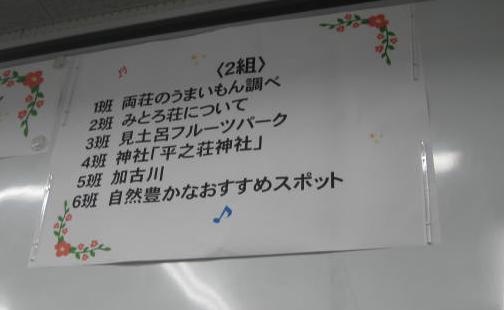 〈2組〉
1班 両荘のうまいもん調べ
2班 みとろ荘について
3班 見土呂フルーツパーク
4班 神社「平之荘神社」
5班 加古川
6班 自然豊かなおすすめスポット